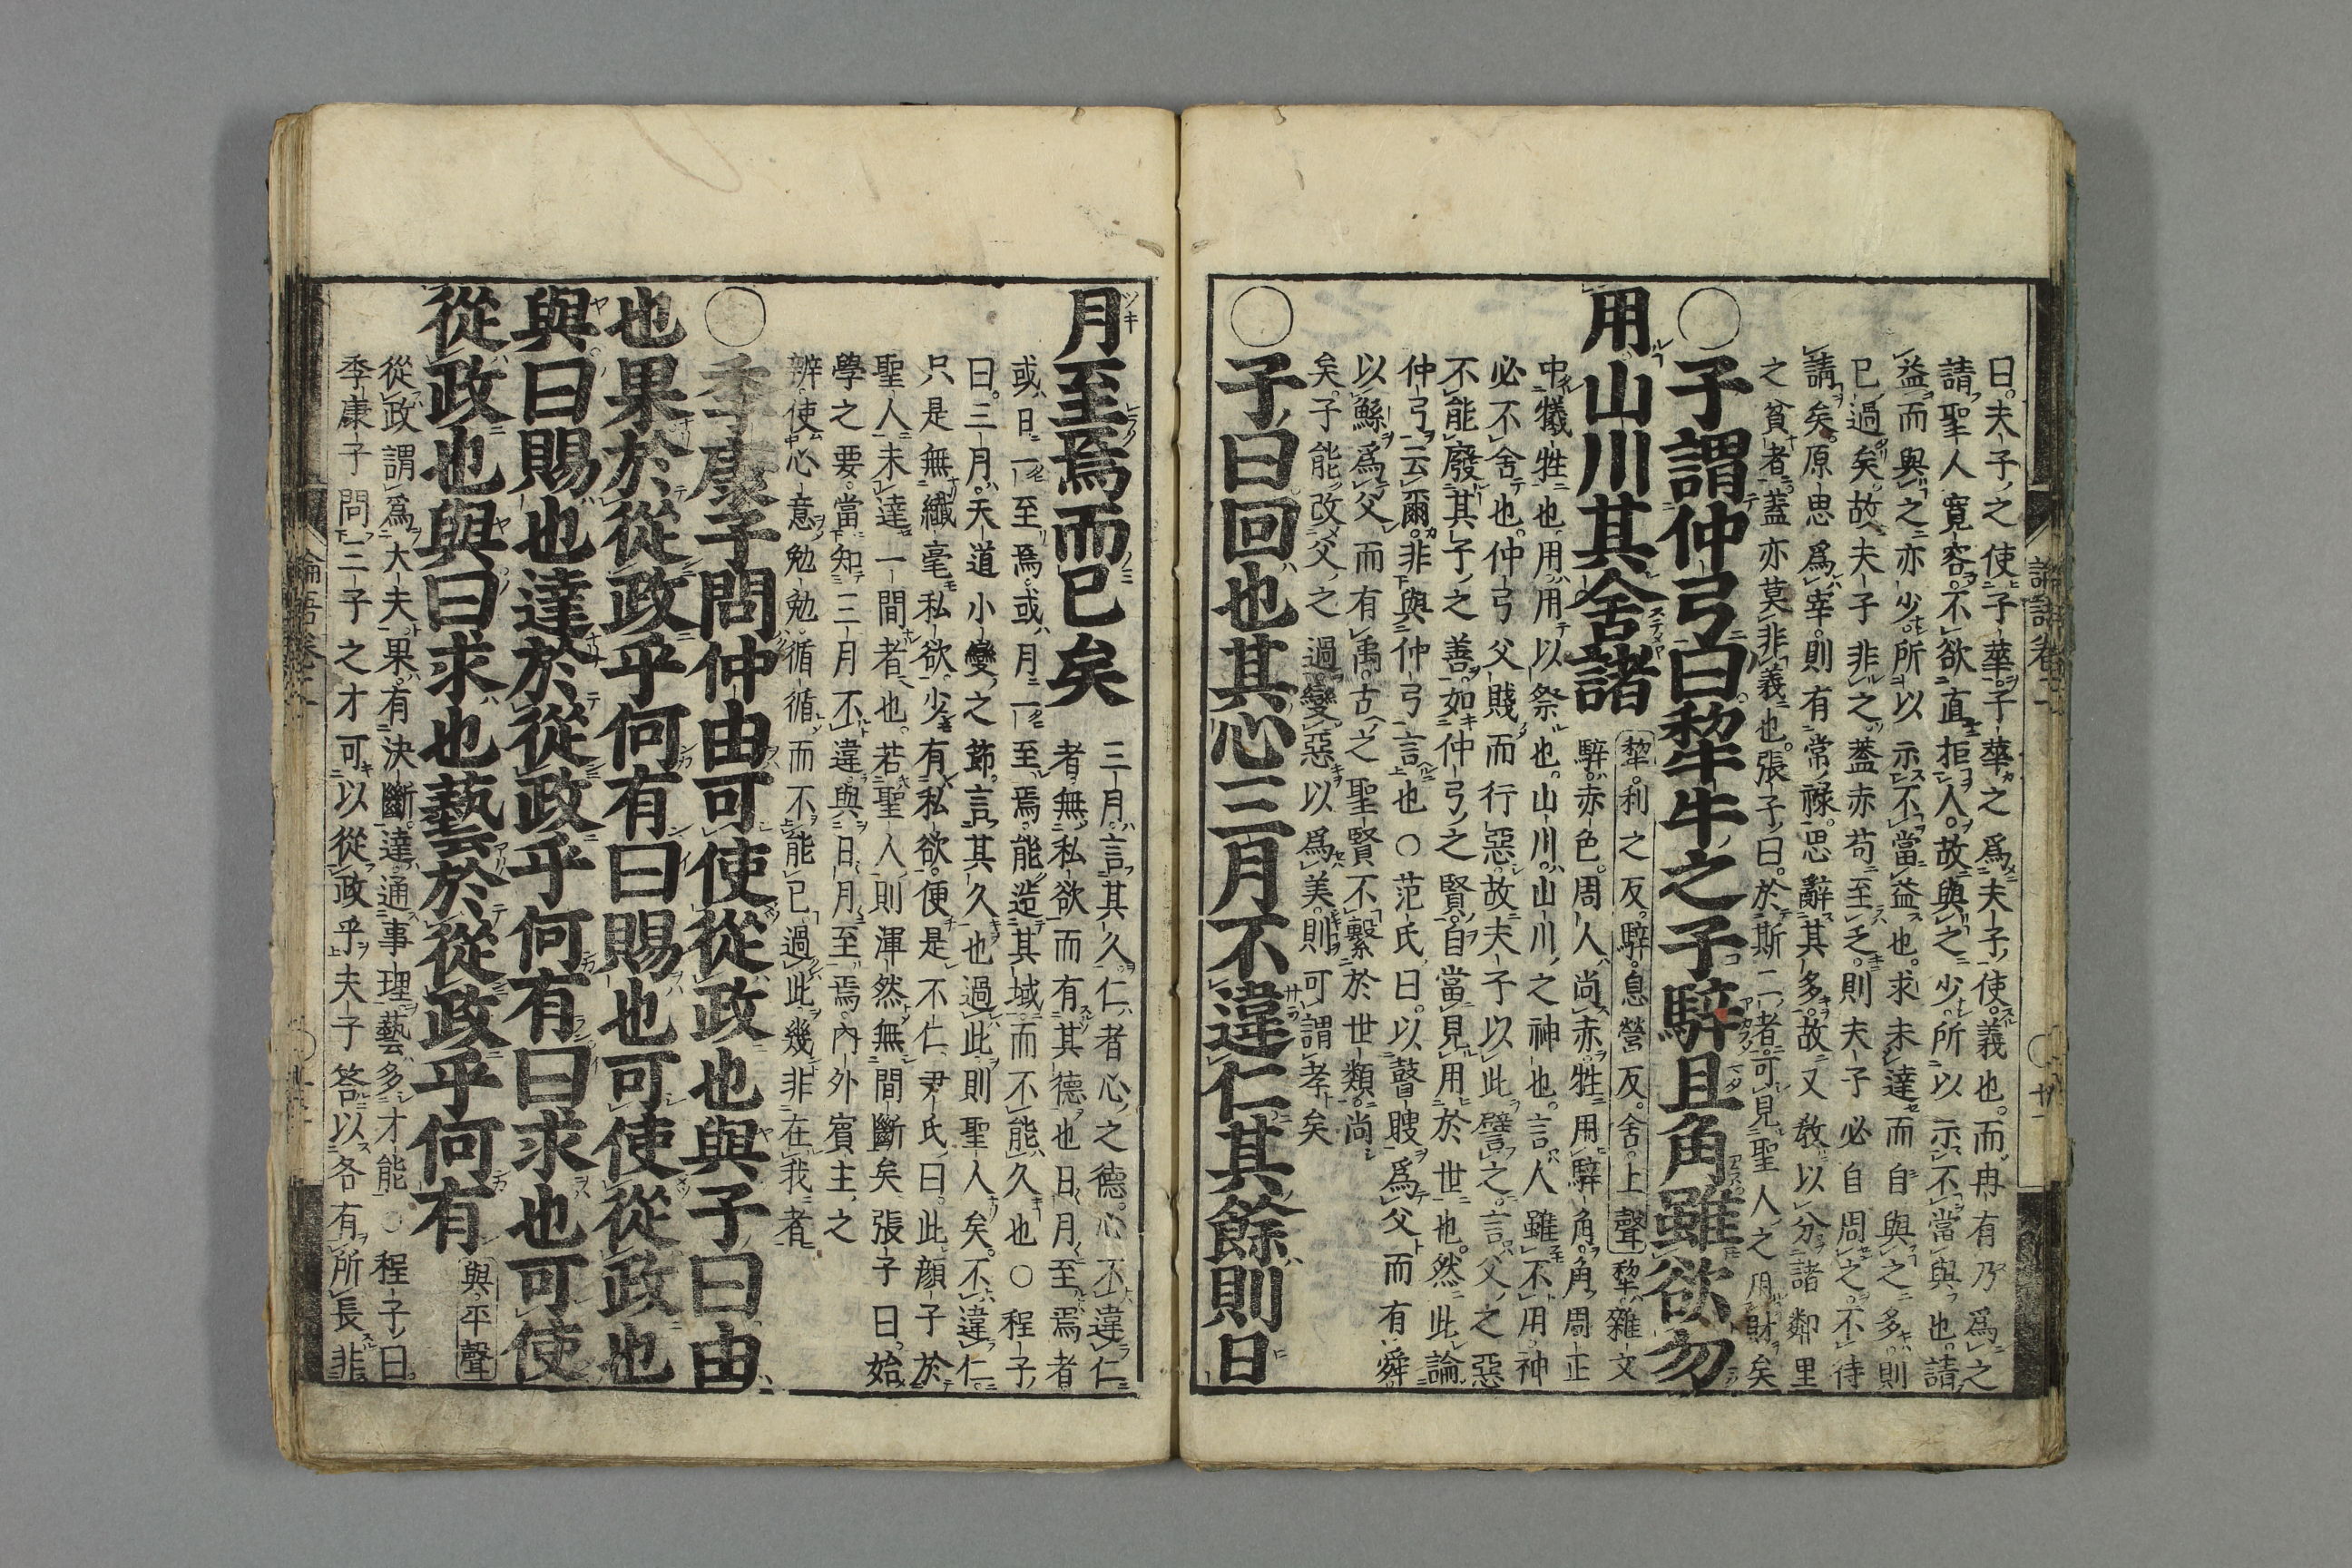 曰夫子之使子華子華之爲夫子使義也而冉有乃爲之
請聖人寬容不欲直拒人故與之少所以示不當與也請
益而與之亦少所以示不當益也求未達而自與之多則
已過矣故夫子非之蓋赤苟至乏則夫子必自周之不待
請矣原思爲宰則有常祿思辭其多故又敎以分諸鄰里
之貧者蓋亦莫非義也張子曰於斯二者可見聖人之用財矣
○子謂仲弓曰犂牛之子騂且角雖欲勿
用山川其舍諸
犂利之反騂息營反舍上聲犂雜文
騂赤色周人尚赤牲用騂角角周正
中犧牲也用用以祭也山川山川之神也言人雖不用神
必不舍也仲弓父賤而行惡故夫子以此譬之言父之惡
不能廢其子之善如仲弓之賢自當見用於世也然此論
仲弓云爾非與仲弓言也○范氏曰以瞽瞍爲父而有舜
以鯀爲父而有禹古之聖賢不繫於世類尚
矣子能改父之過變惡以爲美則可謂孝矣
○子曰回也其心三月不違仁其餘則日
論語卷二
月至焉而已矣
三月言其久仁者心之德心不違仁
者無私欲而有其德也日月至焉者
或日一至焉或月一至焉能造其域而不能久也○程子
曰三月天道小變之節言其久也過此則聖人矣不違仁
只是無纖毫私欲少有私欲便是不仁尹氏曰此顔子於
聖人未達一間者也若聖人則渾然無間斷矣張子曰始
學之要當知三月不違與日月至焉內外賓主之
辨使心意勉勉循循而不能已過此幾非在我者
○季康子問仲由可使從政也與子曰由
也果於從政乎何有曰賜也可使從政也
與曰賜也達於從政乎何有曰求也可使
從政也與曰求也藝於從政乎何有
與平聲
從政謂爲大夫果有決斷達通事理藝多才能○程子曰
季康子問三子之才可以從政乎夫子答以各有所長非
論語卷二